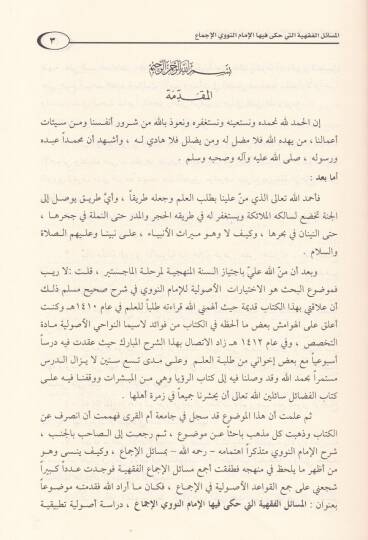 المسائل الفقهية التي حكى فيها الإمام النووي الإجماع
٣
بسم الله الرحمن الرحيم
المقدمة
إن الحمد لله نحمده ونستعينه ونستغفره ونعوذ بالله من شرور أنفسنا ومن سيئات
أعمالنا ، من يهده الله فلا مضل له ومن يضلل فلا هادي لـه ، وأشهد أن محمداً عبده
ورسوله ، صلى الله عليه وآله وصحبه وسلم .
أما بعد :
فأحمد الله تعالى الذي منّ علينا بطلب العلم وجعله طريقاً ، وأيَّ طريق يوصل إلى
الجنة تخضع لسالكه الملائكة ويستغفر له في طريقه الحجر والمدر حتى النملة في جحرها ،
حتى النينان في بحرها ، وكيف لا وهو ميراث الأنبياء ، على نبينا وعليهم الصلاة
والسلام .
وبعد أن منّ الله عليّ باجتياز السنة المنهجية لمرحلة الماجستير ، قلت : لا ريب
فموضوع البحث هو الاختيارات الأصولية للإمام النووي في شرح صحيح مسلم ذلك
أن علاقتي بهذا الكتاب قديمة حيث ألهمني الله قراءته طلباً للعلم في عام ١٤١٠هـ وكنت
أعلق على الهوامش بعض ما ألحظه في الكتاب من فوائد لاسيما النواحي الأصولية مادة
التخصص ، وفي عام ١٤١٢هـ زاد الاتصال بهذا الشرح المبارك حيث عقدت فيه درساً
أسبوعياً مع بعض إخواني من طلبة العلم وعلى مدى تسع سنين لا يزال الدرس
مستمراً بحمد الله وقد وصلنا فيه إلى كتاب الرؤيا وهي من المبشرات ووقفنا فيه على
كتاب الفضائل سائلين الله تعالى أن يحشرنا جميعاً في زمرة أهلها .
ثم علمت أن هذا الموضوع قد سجل في جامعة أم القرى فهممت أن انصرف عن
الكتاب وذهبت كل مذهب باحثاً عن موضوع ، ثم رجعت إلى الصاحب بالجنب ،
شرح الإمام النووي متذكراً اهتمامه – رحمه الله – بمسائل الإجماع ، وكيف ينسى وهو
من أظهر ما يلحظ في منهجه فطفقت أجمع مسائل الإجماع الفقهية فوجدت عدداً كبيراً
شجعني على جمع القواعد الأصولية في الإجماع ، فكان ما أراد الله فقدمته موضوعاً
بعنوان : المسائل الفقهية التي حكى فيها الإمام النووي الإجماع ، دراسة أصولية تطبيقية